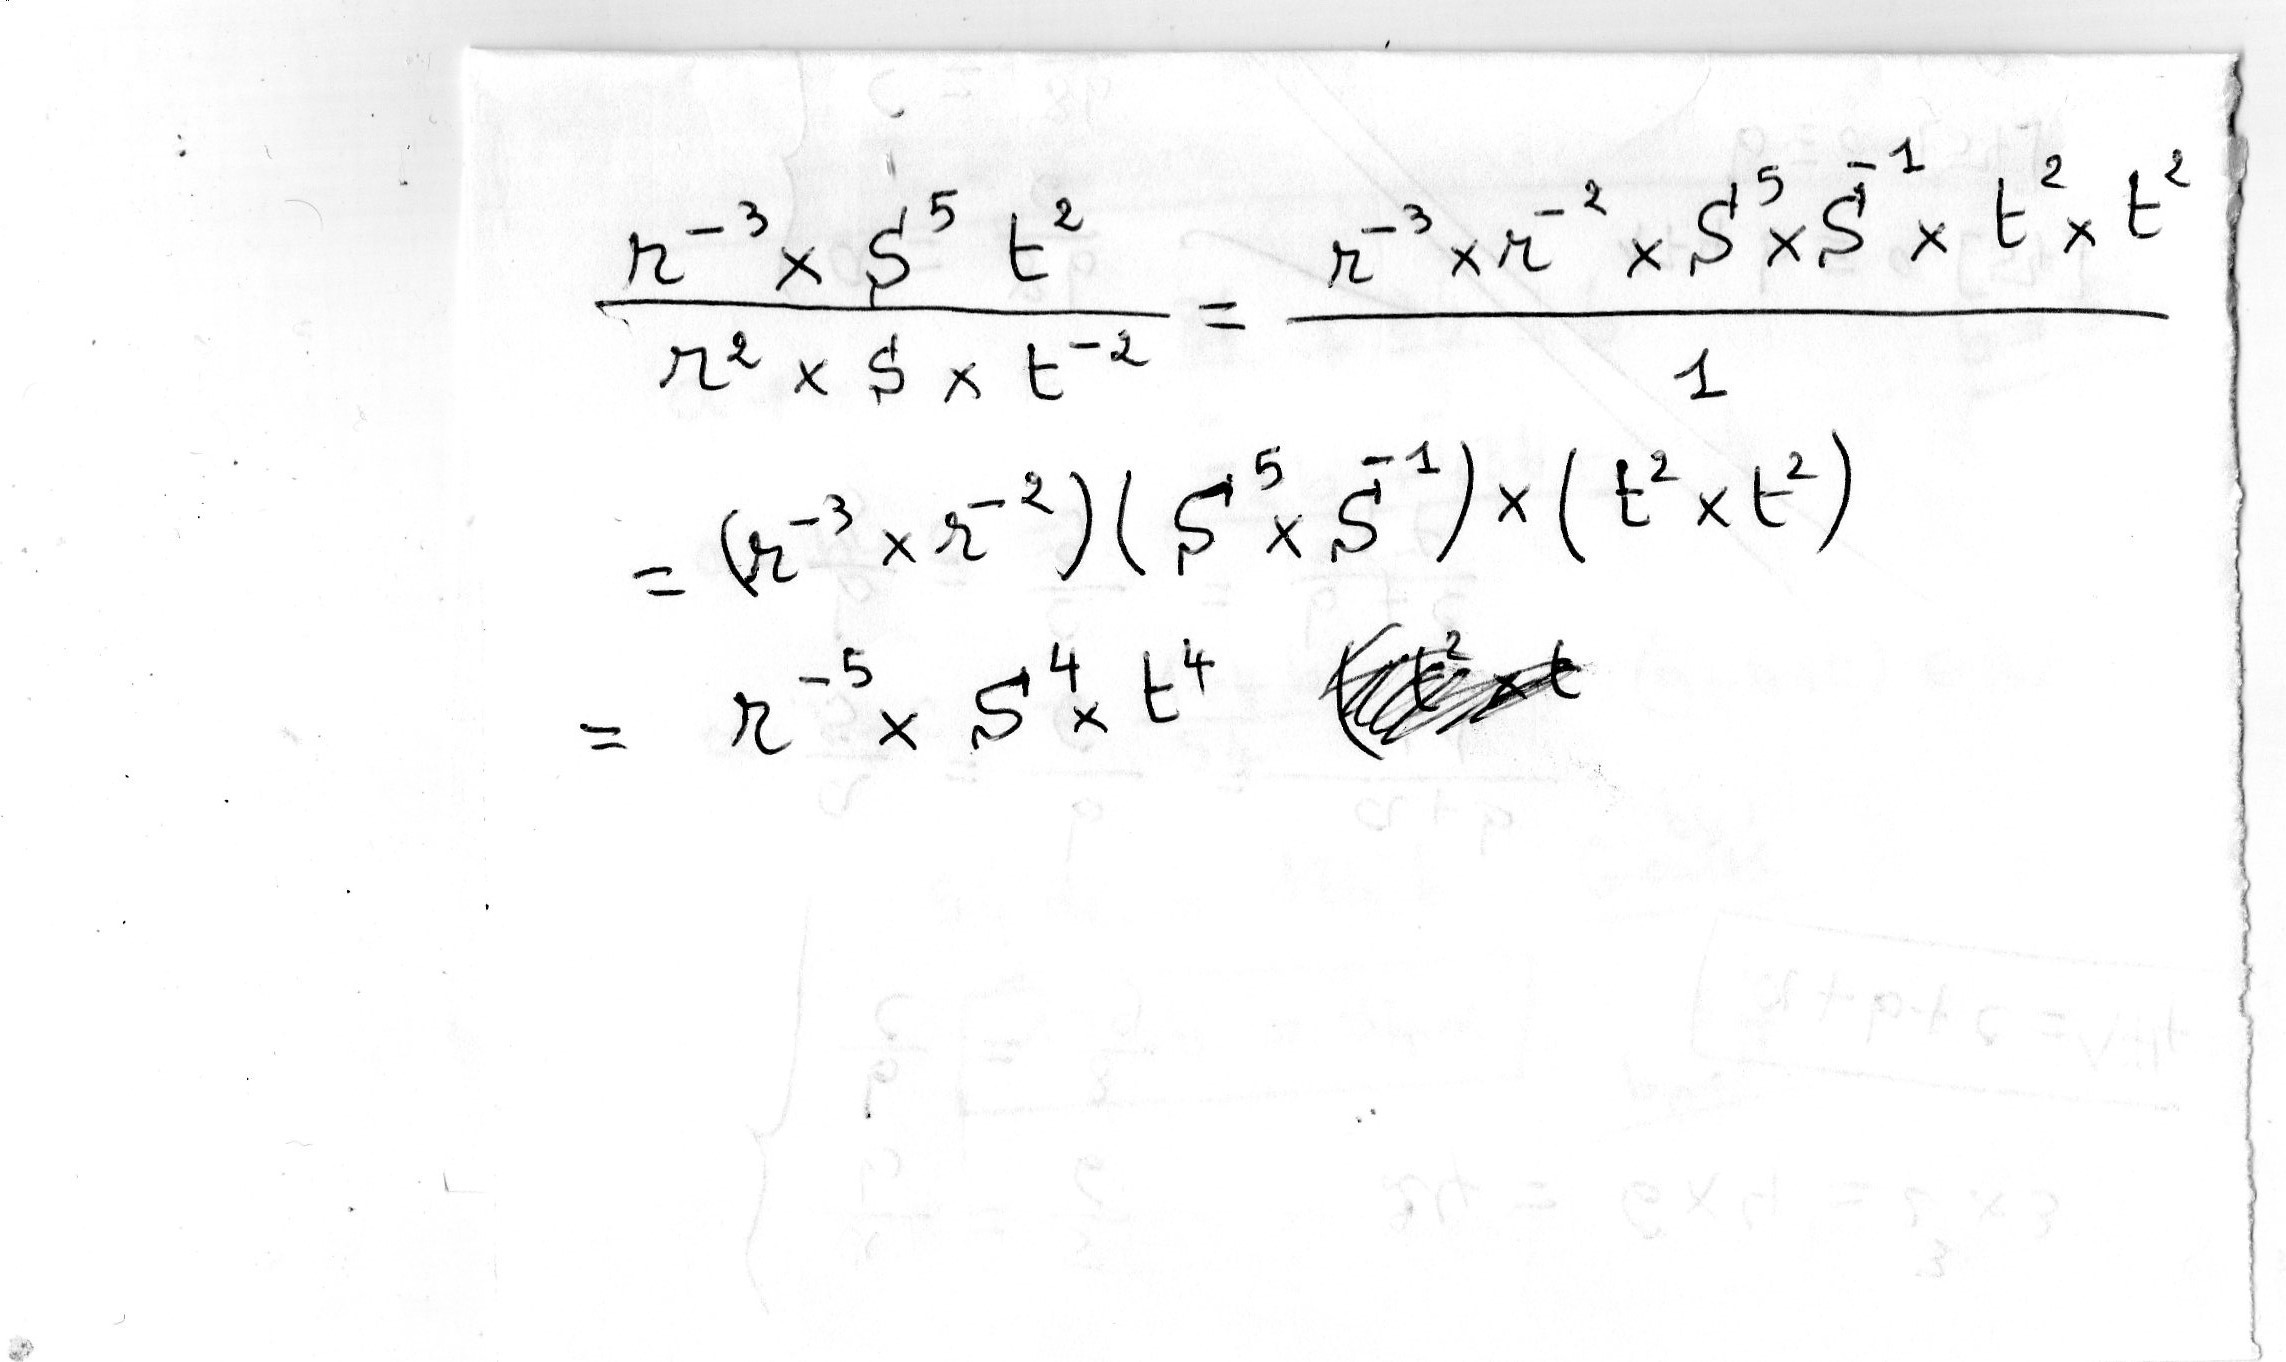 r⁻³ × S⁵ t² / r² × S × t⁻² = r⁻³ × r⁻² × S⁵ × S⁻¹ × t² × t² / 1
= (r⁻³ × r⁻²)(S⁵ × S⁻¹) × (t² × t²)
= r⁻⁵ × S⁴ × t⁴